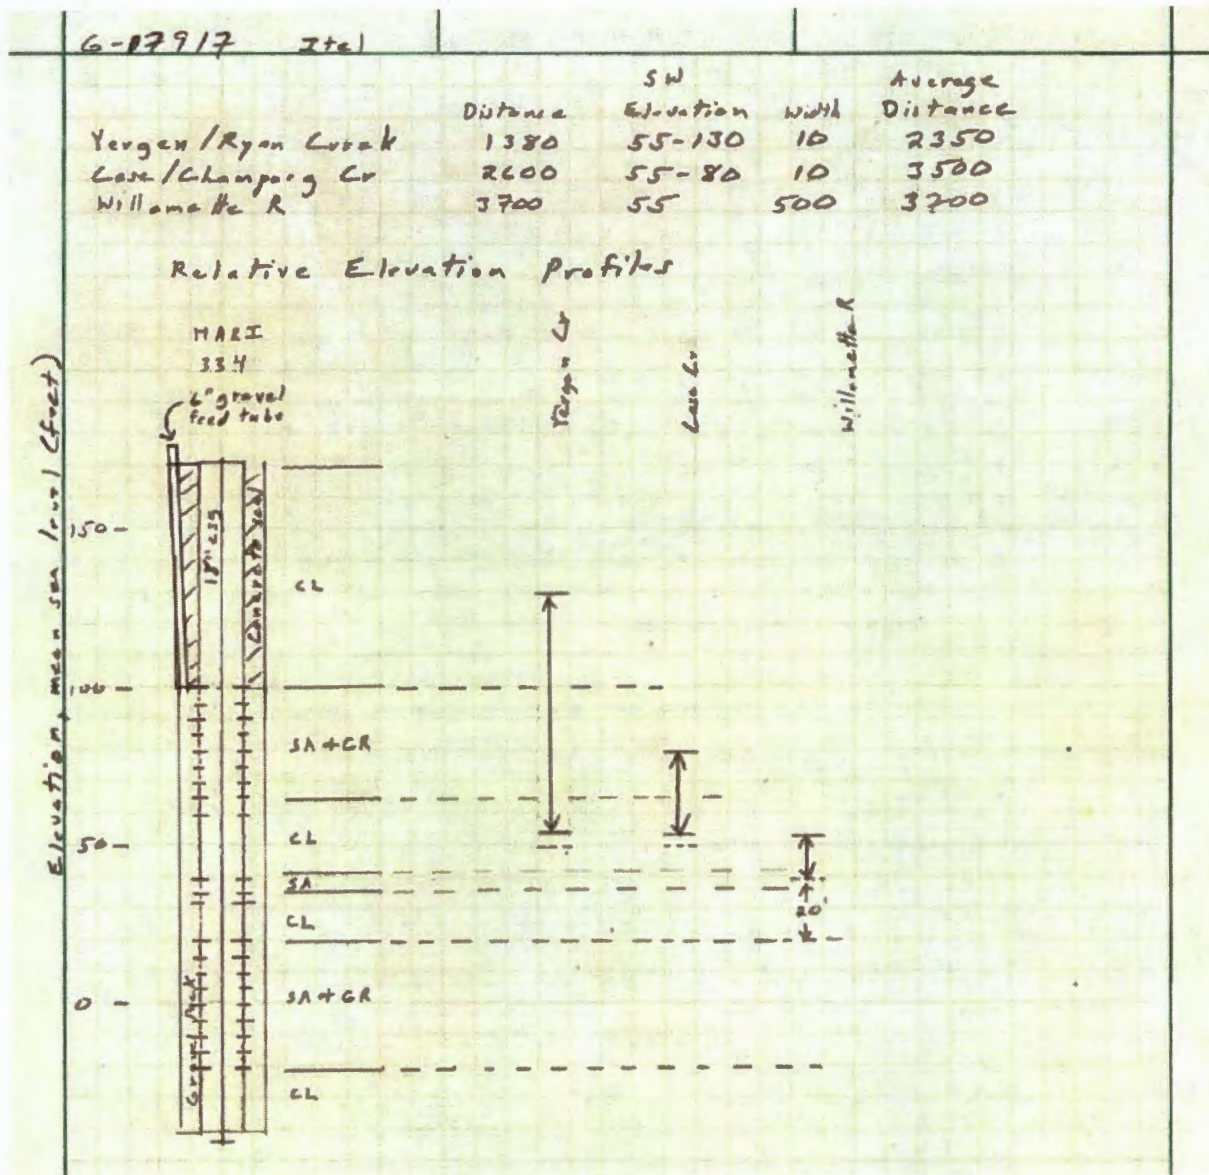 G-17917 Itel
SW Average
Distance Elevation Width Distance
Yergen/Ryan Creek 1380 55-130 10 2350
Case/Champoeg Cr 2600 55-80 10 3500
Willamette R 3700 55 500 3700
Relative Elevation Profiles
MARI
334
6" gravel
feed tube
Yergen Cr
Case Cr
Willamette R
Elevation, mean sea level (feet)
150-
18" csg
Concrete seal
CL
100-
SA+GR
CL
50-
SA
20'
CL
0-
SA+GR
Gravel Pack
CL